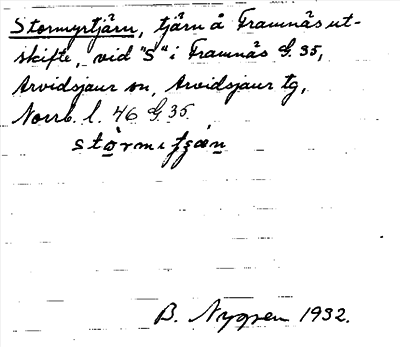 Stormyrtjärn, tjärn å Framnäs ut-
skifte, vid "S" i Framnäs G. 35,
Arvidsjaur sn, Arvidsjaur tg,
Norrb. l. 46 G 35
B. Nygren 1932.